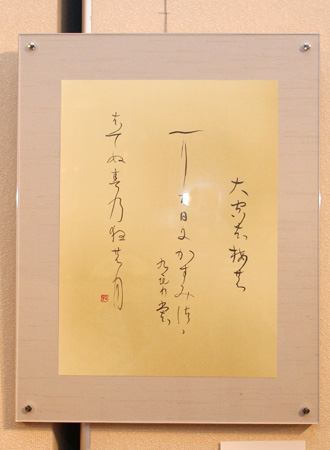 大空は梅の
にほひにかすみつゝ
くもりも
はてぬ春乃夜の月